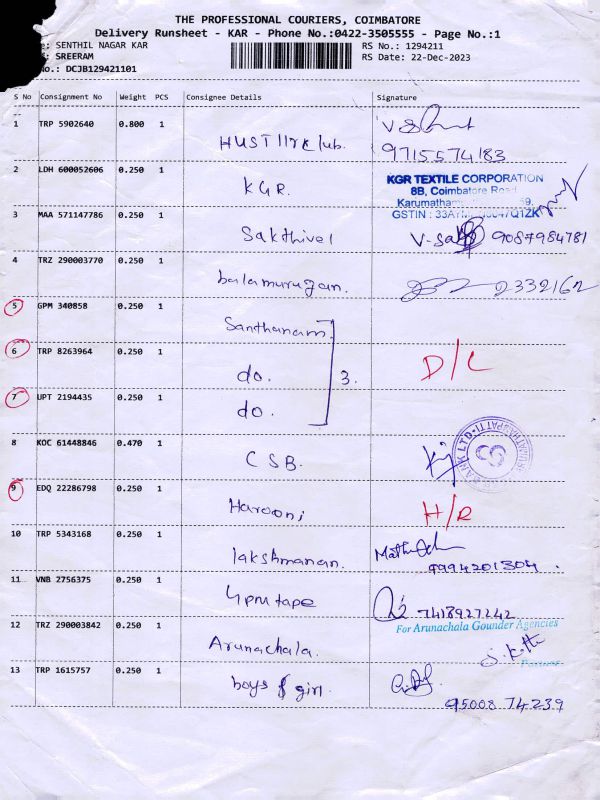 THE PROFESSIONAL COURIERS, COIMBATORE
Delivery Runsheet - KAR - Phone No.:0422-3505555 - Page No.:1
e: SENTHIL NAGAR KAR RS No.: 1294211
S: SREERAM RS Date: 22-Dec-2023
No.: DCJB129421101
S No Consignment No Weight PCS Consignee Details Signature
1 TRP 5902640 0.800 1
9715574183
2 LDH 600052606 0.250 1 KGR.
KGR TEXTILE CORPORATION
8B, Coimbatore Road
GSTIN :
3 MAA 571147786 0.250 1 Sakthivel 9087984781
4 TRZ 290003770 0.250 1 balamurugan. 2332162
5 GPM 340858 0.250 1 Santhanam
6 TRP 8263964 0.250 1 do. 3. D/L
7 UPT 2194435 0.250 1 do.
8 KOC 61448846 0.470 1 CSB.
9 EDQ 22286798 0.250 1 Harooni H/R
10 TRP 5343168 0.250 1 lakshmanan.
9994201304.
11 VNB 2756375 0.250 1 4pm tape 7418927242
12 TRZ 290003842 0.250 1 Arunachala.
For Arunachala Gounder Agencies
Partner
13 TRP 1615757 0.250 1 boys & girl
95008 74239